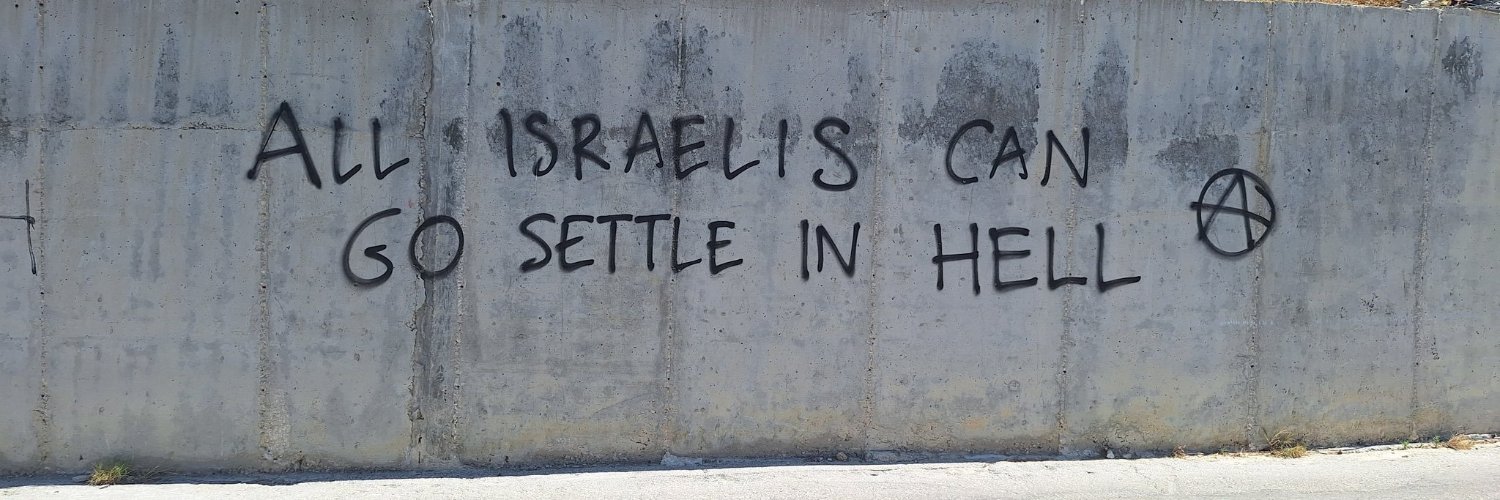 ALL ISRAELIS CAN
GO SETTLE IN HELL Ⓐ